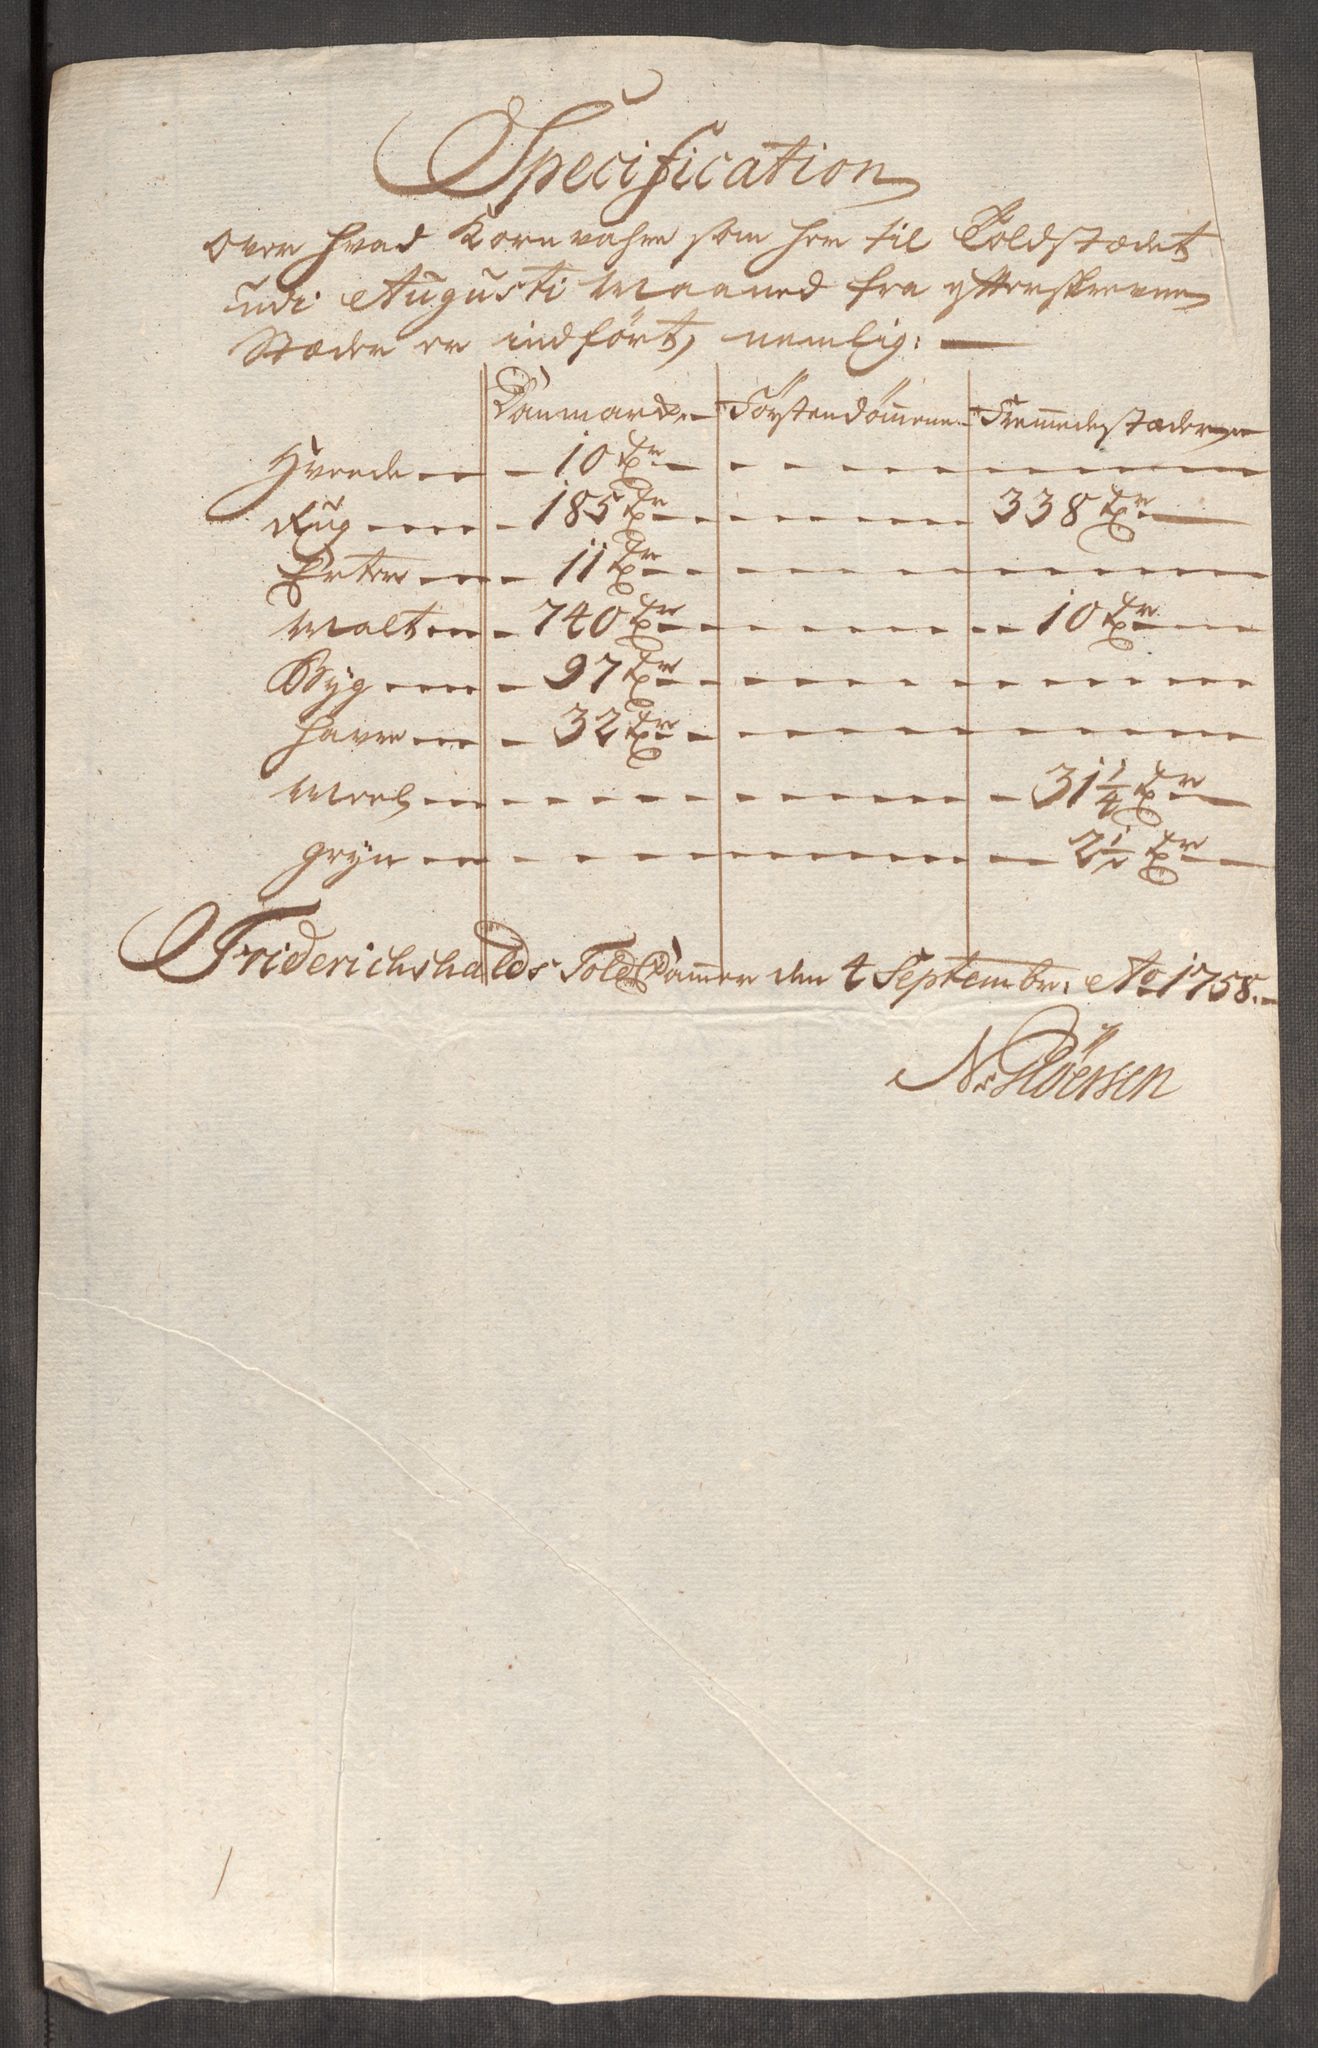 Specification
Over hvad Korn vahre som her til Toldstædet
udi Augusti Maaned fra ytterskrevne
Stæder er indført, nemlig:
Danmark Førstendømmene Fremmedestæder
Hvede 10 Tr
Rug 185 Tr 338 Tr
Erter 11 Tr
Malt 740 Tr 10 Tr
Byg 97 Tr
Havre 32 Tr
Meel 31 1/4 Tr
gryn 2 1/2 Tr
Friderichshalds Told Cammer den 4 Septembr: Ao 1758.